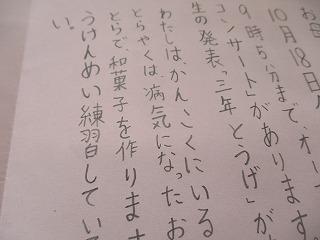 お母
10月18日
9時5分まで、オー
コンサート」があります。
生の発表「三年とうげ」が
わたしは、かんこくにいる
とらやくは、病気になったお
とらで、和菓子を作ります
うけんめい練習している
い。